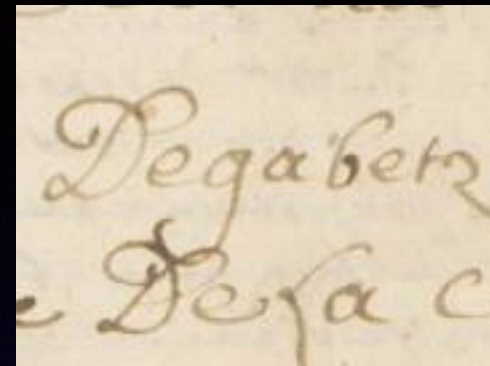 Degabetz
e De la c